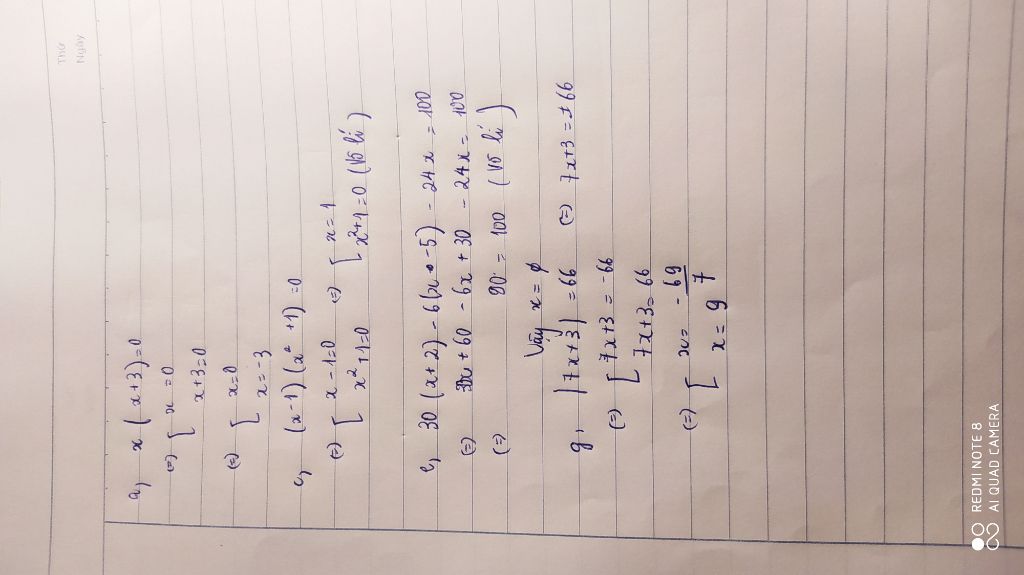 Thứ
Ngày
a, x (x+3)=0
(=) [ x=0
x+3=0
(=) [ x=0
x=-3
c, (x-1)(x² +1)=0
(=) [ x-1=0 (=) [ x=1
x²+1=0 x²+1=0 (Vô lí)
e, 30 (x+2) - 6(x-5) - 24x = 100
(=) 30x + 60 - 6x + 30 - 24x = 100
(=) 90 = 100 (Vô lí)
Vậy x = ϕ
g, |7x+3| = 66 (=) 7x+3 = ±66
(=) [ 7x+3 = -66
7x+3 = 66
(=) [ x = -69/7
x = 9
REDMI NOTE 8
AI QUAD CAMERA